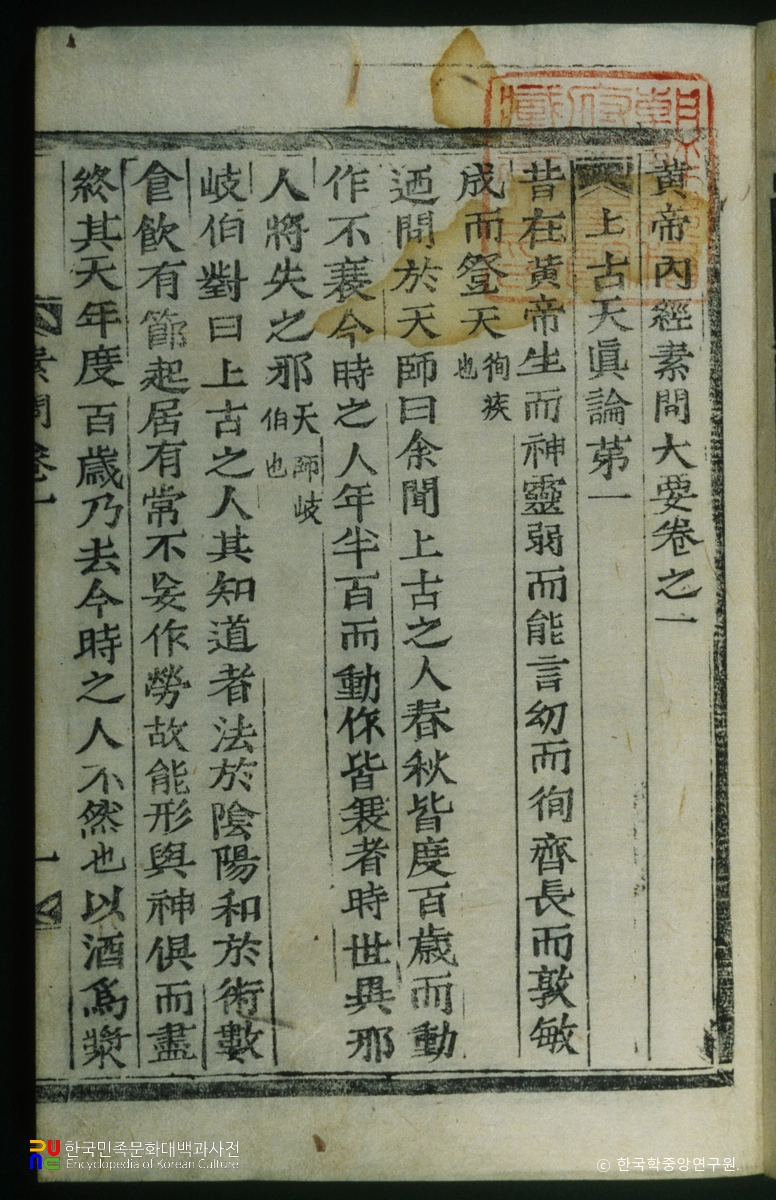 黃帝內經素問大要卷之一
上古天眞論第一
昔在黃帝生而神靈弱而能言幼而徇齊長而敦敏
成而登天徇疾也
迺問於天師曰余聞上古之人春秋皆度百歲而動
作不衰今時之人年半百而動作皆衰者時世異耶
人將失之邪天師岐伯也
岐伯對曰上古之人其知道者法於陰陽和於術數
食飮有節起居有常不妄作勞故能形與神俱而盡
終其天年度百歲乃去今時之人不然也以酒爲漿
素問卷一
一
한국민족문화대백과사전
Encyclopedia of Korean Culture
© 한국학중앙연구원